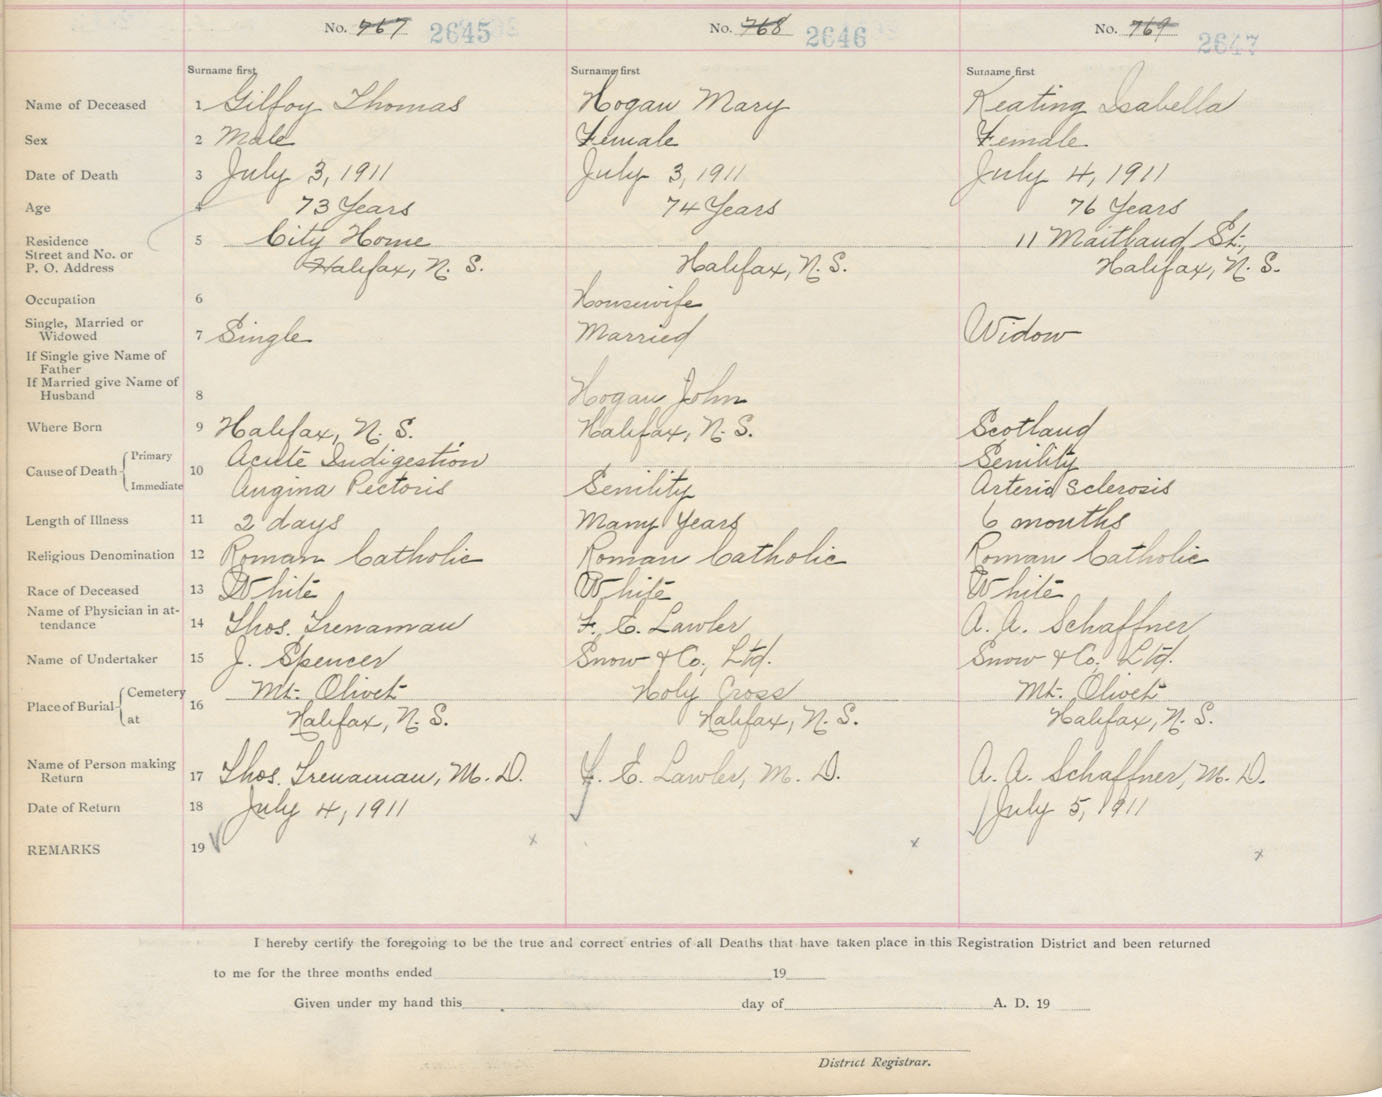 No. 767 2645 No. 768 2646 No. 769 2647
Surname first Surname first Surname first
Name of Deceased 1 Gilfoy Thomas Hogan Mary Keating Isabella
Sex 2 Male Female Female
Date of Death 3 July 3, 1911 July 3, 1911 July 4, 1911
Age 4 73 Years 74 Years 76 Years
Residence 5 City Home 11 Maitland St.,
Street and No. or
P. O. Address Halifax, N. S. Halifax, N. S. Halifax, N. S.
Occupation 6 Housewife
Single, Married or
Widowed 7 Single Married Widow
If Single give Name of
Father
If Married give Name of
Husband 8 Hogan John
Where Born 9 Halifax, N. S. Halifax, N. S. Scotland
Cause of Death Primary 10 Acute Indigestion Senility
Immediate Angina Pectoris Senility Arterio Sclerosis
Length of Illness 11 2 days Many Years 6 months
Religious Denomination 12 Roman Catholic Roman Catholic Roman Catholic
Race of Deceased 13 White White White
Name of Physician in at-
tendance 14 Thos. Trenaman F. E. Lawler A. A. Schaffner
Name of Undertaker 15 J. Spencer Snow & Co., Ltd. Snow & Co., Ltd.
Place of Burial Cemetery 16 Mt. Olivet Holy Cross Mt. Olivet
at Halifax, N. S. Halifax, N. S. Halifax, N. S.
Name of Person making
Return 17 Thos. Trenaman, M. D. F. E. Lawler, M. D. A. A. Schaffner, M. D.
Date of Return 18 July 4, 1911 July 5, 1911
REMARKS 19 x x x
I hereby certify the foregoing to be the true and correct entries of all Deaths that have taken place in this Registration District and been returned
to me for the three months ended 19
Given under my hand this day of A. D. 19
District Registrar.